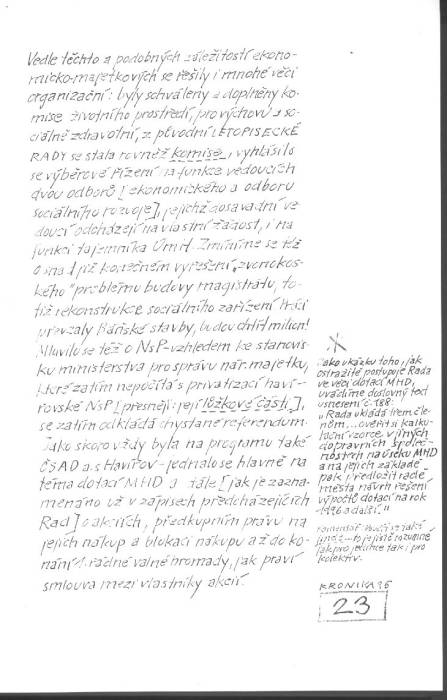 Vedle těchto a podobných záležitostí ekono-
micko-majetkových se řešily i mnohé věci
organizační: byly schváleny a doplněny ko-
mise životního prostředí, pro výchovu a so-
ciálně zdravotní, z původní LETOPISECKÉ
RADY se stala rovněž komise, vyhlásilo
se výběrové řízení na funkce vedoucích
dvou odborů [ekonomického a odboru
sociálního rozvoje], jejichž dosavadní ve-
doucí odcházejí na vlastní žádost, i na
funkci tajemníka ÚmH. Zmíníme se též
o snad již konečném vyřešení „zvonokos-
kého" problému budovy magistrátu, to-
tiž rekonstrukce sociálního zařízení. Práci
převzaly Báňské stavby, budou chtít milion!
Mluvilo se též o NsP - vzhledem ke stanovis-
ku ministerstva pro správu nár. majetku,
které zatím nepočítá s privatizací haví-
řovské NsP [přesněji: její lůžkové části],
se zatím odkládá chystané referendum.
Jako skoro vždy byla na programu také
ČSAD a.s Havířov - jednalo se hlavně na
téma dotací MHD a dále [jak je zazna-
menáno už v zápisech předcházejících
Rad] o akciích, předkupním právu na
jejich nákup a blokaci nákupu až do ko-
nání řádné valné hromady, jak praví
smlouva mezi vlastníky akcií.
Jako ukázku toho, jak
ostražitě postupuje Rada
ve věci dotací MHD,
uvádíme doslovný text
usnesení č. 188:
„Rada ukládá ... čle-
nem, ... ověřit si kalku-
lační vzorce v jiných
dopravních společ-
nostech na úseku MHD
a na jejich základě
pak předložit radě
města návrh řešení
výpočtů dotací na rok
1996 a další."
jak pro jedince tak i pro
kolektiv.
KRONIKA 96
23